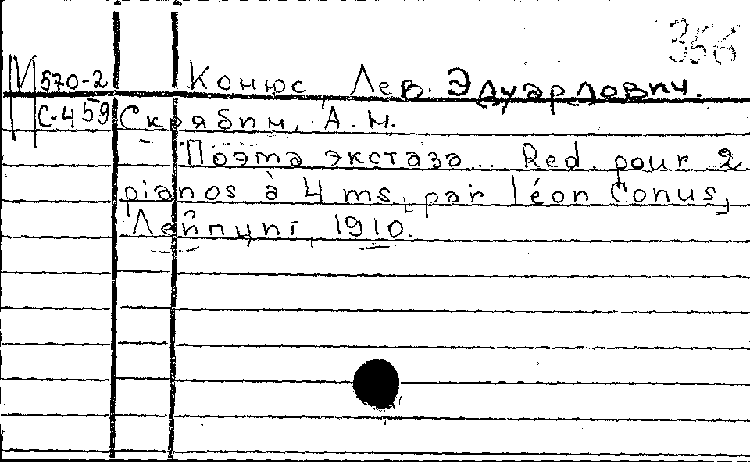 366
М 570-2 Конюс Лев Эдуардович.
С-459 Скрябин, А.Н.
Поэма экстаза. Red. pour 2
pianos à 4 ms, par Léon Conus,
Лейпциг, 1910.